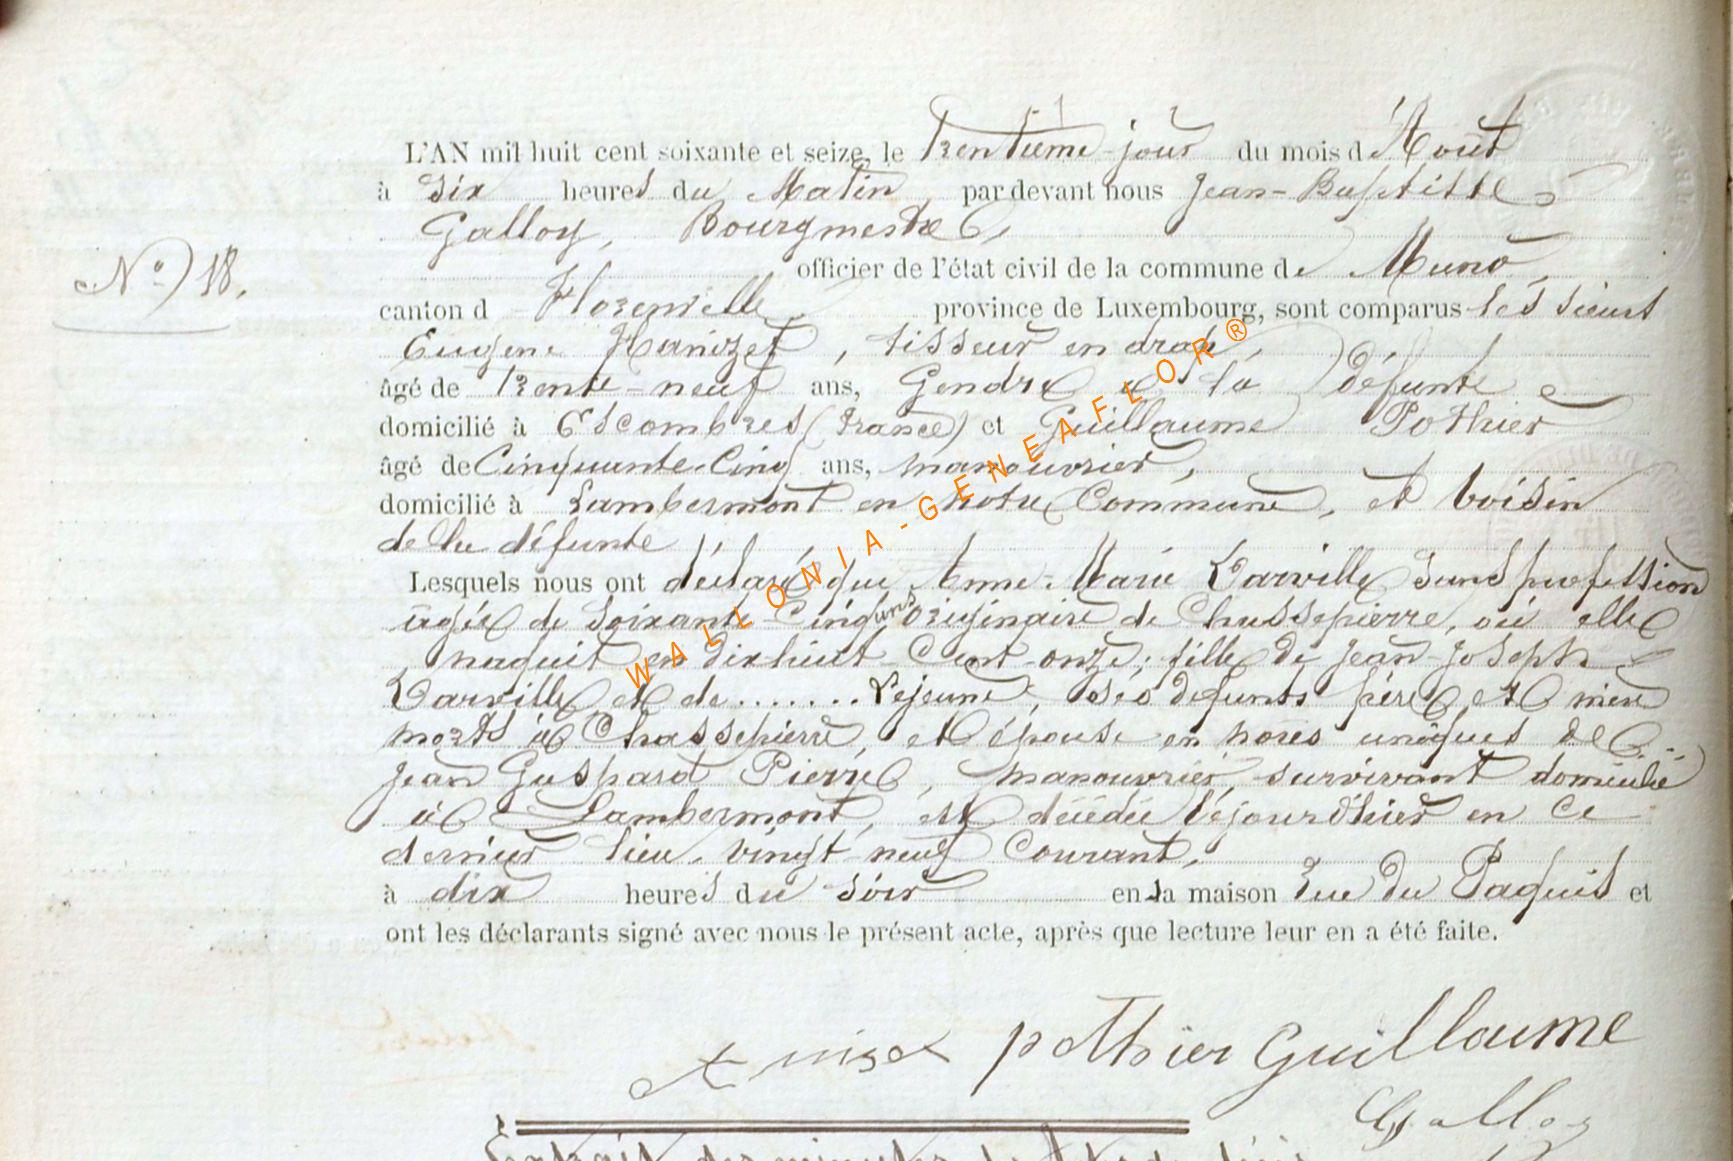 L'AN mil huit cent soixante et seize, le trentième jour du mois d'Août
à six heures du Matin, par devant nous Jean-Baptiste
Galloy, Bourgmestre,
officier de l'état civil de la commune de Muno,
N° 18.
canton d Florenville, province de Luxembourg, sont comparus les sieurs
Eugene Hanizet, tisseur en drap,
âgé de trente-neuf ans, Gendre à la défunte
domicilié à Escombres (France) et Guillaume Pothier
âgé de Cinquante-Cinq ans, manouvrier,
domicilié à Lambermont en notre Commune, et voisin
de la défunte
Lesquels nous ont déclaré que Anne-Marie Warville sans profession
agée de Soixante-Cinq ans originaire de Chassepierre, où elle
naquit en dix huit-Cent-onze; fille de Jean-Joseph
Warville, et de ....... Lejeune, ses défunts père et mère
morts à Chassepierre, et épouse en noces uniques de
Jean Gaspard Pierre, manouvrier, survivant domicilié
à Lambermont, est décédée en ce
dernier lieu, vingt-neuf Courant,
à dix heures du soir en sa maison rue du Paquis et
ont les déclarants signé avec nous le présent acte, après que lecture leur en a été faite.
pothier Guillaume
Galloy
WALLONIA-GENEAFLOR®